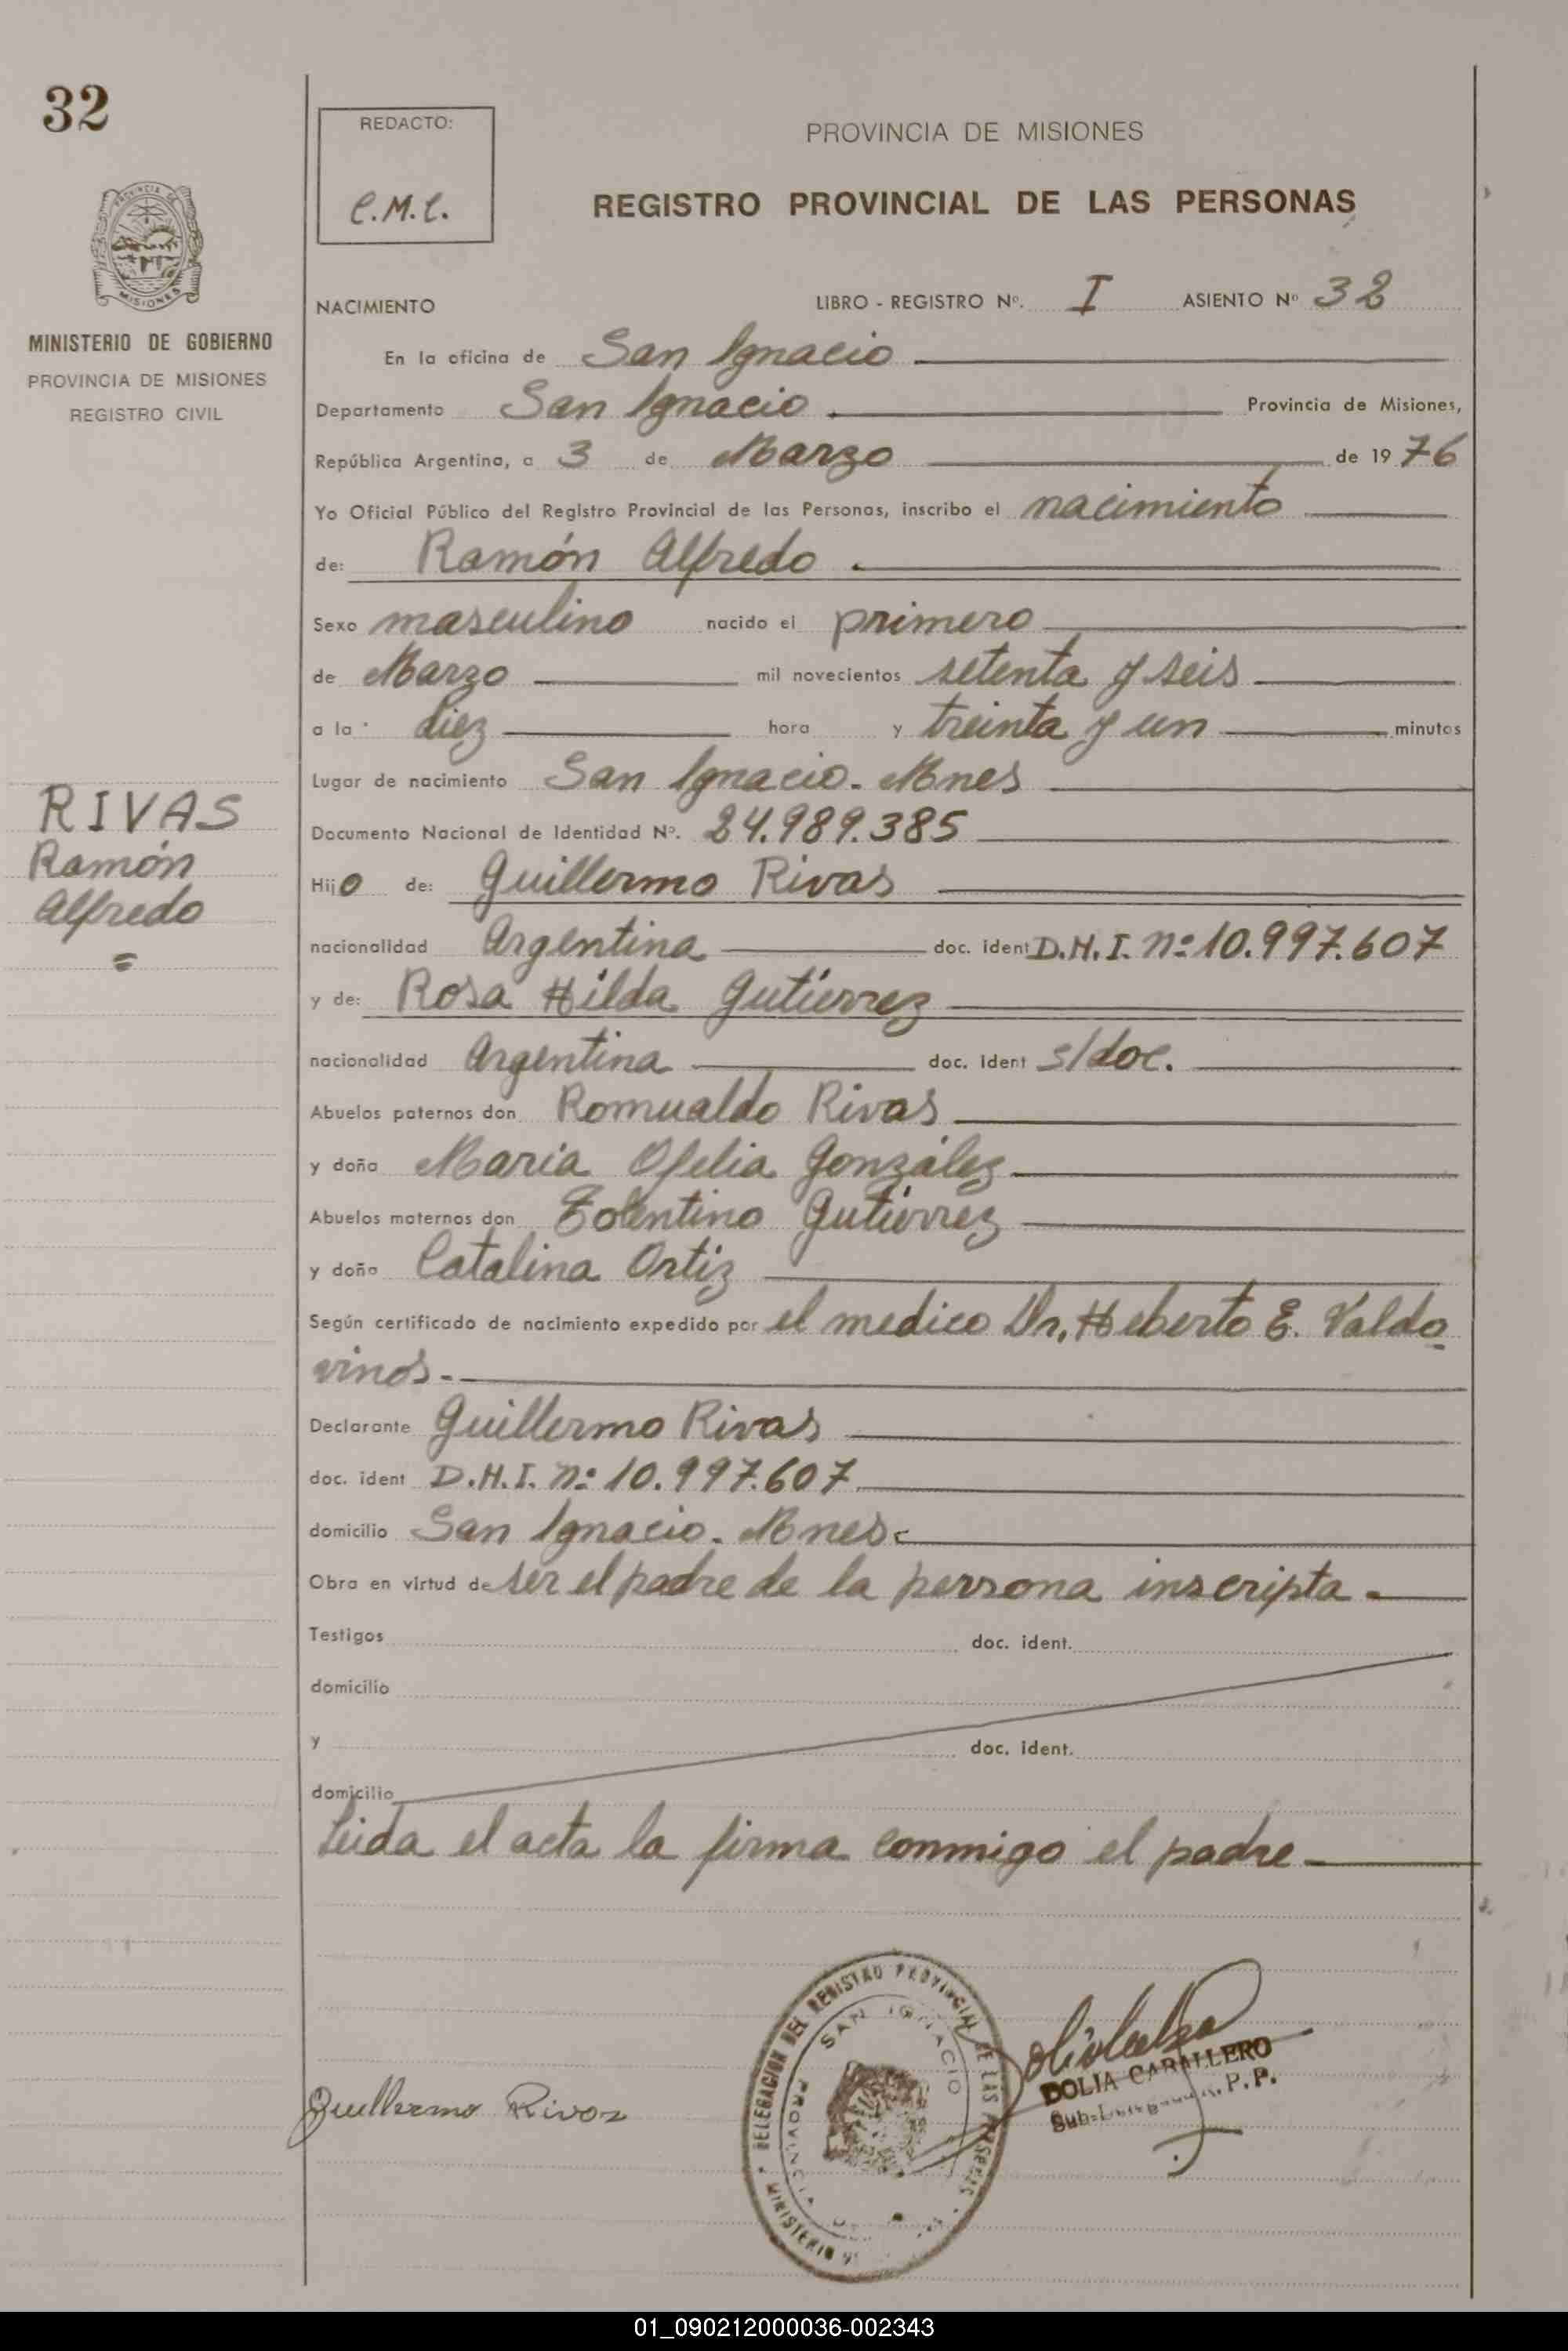 32
PROVINCIA DE MISIONES
MINISTERIO DE GOBIERNO
PROVINCIA DE MISIONES
REGISTRO CIVIL
RIVAS
Ramón
Alfredo
=
REDACTO:
C.M.C.
PROVINCIA DE MISIONES
REGISTRO PROVINCIAL DE LAS PERSONAS
NACIMIENTO LIBRO - REGISTRO Nº. I ASIENTO Nº 32
En la oficina de San Ignacio
Departamento San Ignacio. Provincia de Misiones,
República Argentina, a 3 de Marzo de 1976
Yo Oficial Público del Registro Provincial de las Personas, inscribo el nacimiento
de: Ramón Alfredo.
Sexo masculino nacido el primero
de Marzo mil novecientos setenta y seis
a la diez hora y treinta y un minutos
Lugar de nacimiento San Ignacio. Mnes
Documento Nacional de Identidad Nº. 24.989.385
Hijo de: Guillermo Rivas
nacionalidad Argentina doc. ident D.N.I. nº 10.997.607
y de: Rosa Hilda Gutiérrez
nacionalidad Argentina doc. ident s/doc.
Abuelos paternos don Romualdo Rivas
y doña Maria Ofelia González
Abuelos maternos don Tolentino Gutiérrez
y doña Catalina Ortiz
Según certificado de nacimiento expedido por el medico Dr. Heberto E. Valdo
vinos.-
Declarante Guillermo Rivas
doc. ident D.N.I. nº 10.997.607
domicilio San Ignacio. Mnes
Obra en virtud de ser el padre de la persona inscripta.
Testigos doc. ident.
domicilio
y doc. ident.
domicilio
Leida el acta la firma conmigo el padre
DELEGACION DEL REGISTRO PROVINCIAL DE LAS PERSONAS
SAN IGNACIO
PROVINCIA
MINISTERIO
Guillermo Rivas
DOLIA CABALLERO
P.P.
01_090212000036-002343